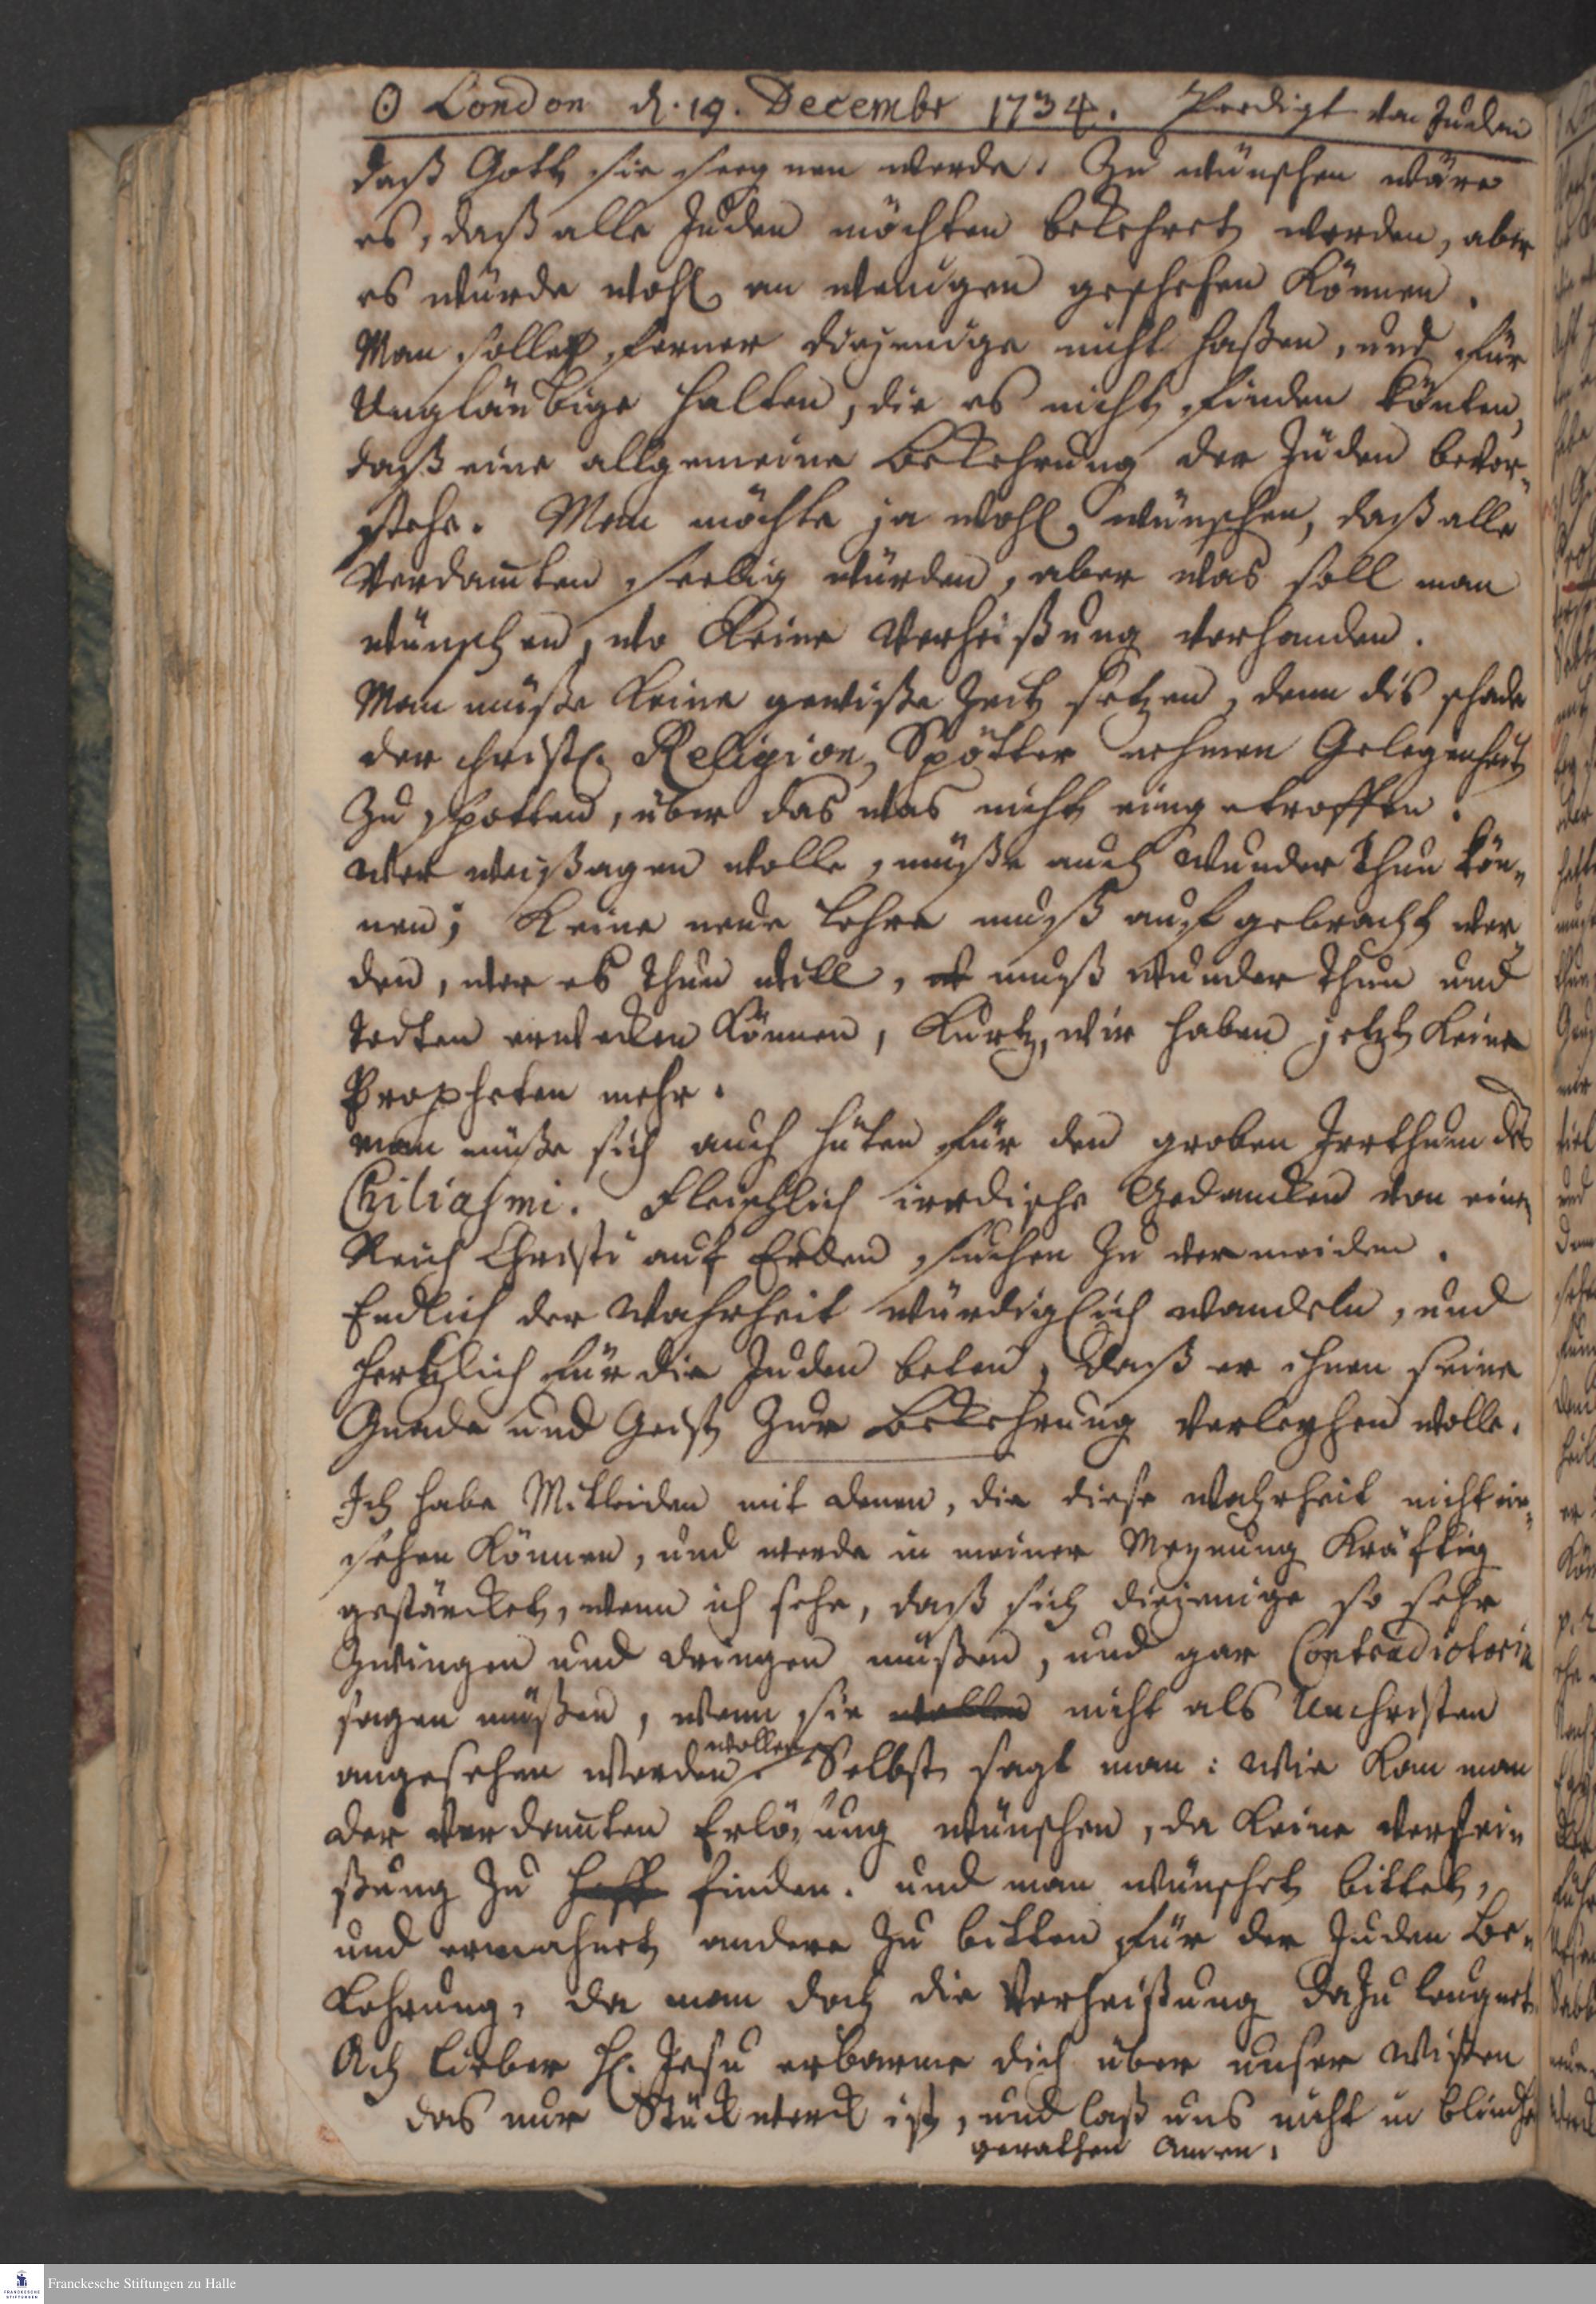 ☉ London d. 19. Decembr 1734. Predigt von Juden
daß Gott sie seegnen werde. Zu wünschen wäre
es, daß alle Juden möchten bekehret werden, aber
es würde wohl an wenigen geschehen können.
Man solle ferner diejenige nicht haßen, und für
Ungläubige halten, die es nicht finden könten,
daß eine allgemeine Bekehrung der Jüden bevor-
stehe. Man möchte ja wohl wünschen, daß alle
Verdam̄ten seelig würden, aber was soll man
wünschen, wo keine Verheißung vorhanden.
Man müße keine gewiße Zeit setzen, denn dis schade
der christl. Religion, Spötter nehmen Gelegenheit
zu spotten, über das was nicht eingetroffen.
Wer weißagen wolle, müße auch Wunder thun kön-
nen; Keine neue Lehre muß aufgebracht wer-
den, wer es thun will, muß Wunder thun und
Todten erwecken können, Kurtz, wir haben jetzt keine
Propheten mehr.
Man müße sich auch hüten für den groben Irrthum des
Chiliasmi. Fleischlich irrdische Gedancken von einem
Reich Christi auf Erden suchen zu vermeiden.
Endlich der Wahrheit würdiglich wandeln, und
hertzlich für die Juden beten, daß er ihnen seine
Gnade und Geist zur Bekehrung verleyhen wolle.
Ich habe Mitleiden mit denen, die diese Wahrheit nicht ein-
sehen können, und werde in meiner Meynung kräftig
gestärcket, wenn ich sehe, daß sich diejenige so sehr
zwingen und dringen müßen, und gar Contradictoria
sagen müßen, wenn sie wollen nicht als Unchristen
angesehen werden wollen. Selbst sagt man: Wie kan man
der Verdam̄ten Erlösung wünschen, da keine Verhei-
ßung zu hoff finden. und man wünschet, bittet,
und ermahnet andere zu bitten für der Juden Be-
kehrung, da man doch die Verheißung dazu leugnet.
Ach lieber H. Jesu erbarme dich über unser Wißen
das nur Stückwerck ist, und laß uns nicht in blindh
gerathen Amen.
Franckesche Stiftungen zu Halle